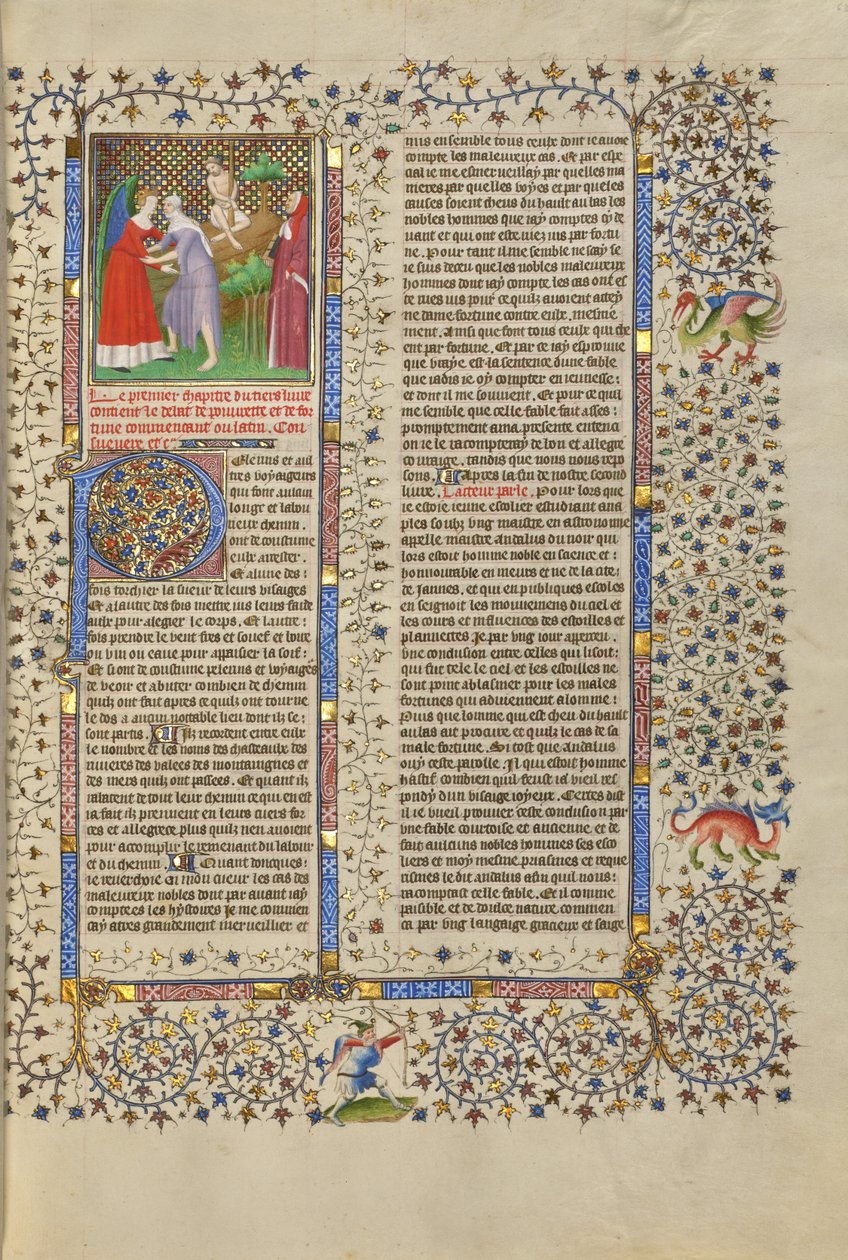 Le premier chapitre du tiers livre
contient le debat de pourete et de for
tune commencant ou latin. Con
sueuere etc.
Pelerins et aul
tres voyageurs
qui font aulcun
longt et labou
rieux chemin.
ont de coustume
eulx arrester.
Et alune des:
fois torchier la sueur de leurs visaiges
Et alautre des fois mettre ius leurs fardе
aulx pour alegier le corps. Et lautre:
fois prendre le vent fres et souef et boire
ou vin ou eaue pour appaisier la soif:
Et si ont de coustume pelerins et voyaigeurs
de veoir et abuter combien de chemin
quilz ont fait apres ce quilz ont tourne
le dos a aucun nottable lieu dont ilz se:
sont partis. Ilz recordent entre eulx
le nombre et les noms des chasteaulx des
riuieres des valees des montaingnes et
des mers quilz ont passees. Et quant ilz
rabatent de tout leur chemin ce qui en est
ia fait ilz prennent en leurs cuers for
ces et allegrece plus quilz nen auoient
pour accomplir le remenant du labour
et du chemin. Quant doncques:
ie reuerchoie en mon cueur les cas des
maleureux nobles dont par auant iay
comptees les hystoires Je me commen
cay a tres grandement merueillier et
mis ensemble tous ceulx dont ie auoie
compte les maleureux cas. Et par espe
cial ie me esmerueillay par quelles ma
nieres par quelles voyes et par queles
causes soient cheus du hault au bas les
nobles hommes que iay comptes cy de
uant et qui ont este ruez ius par fortu
ne. Pour tant il me semble ne scay se
ie suis deceu que les nobles maleureux
hommes dont iay compte les cas ont este
de rues ius pour ce quilz auoient attey
ne dame fortune contre eulx. mesme
ment. Ainsi que font tous ceulx qui che
ent par fortune. Et par ce iay esprouue
que vraye est la sentence dune fable
que iadis ie oy compter en ieunesse:
et dont il me souuient. Et pour ce quil
me semble que celle fable fait asses:
promptement a ma presente entenci
on ie le racompteray de bon et allegre
couraige. tandis que nous nous repo
sons. Apres la fin de nostre second
liure. Lacteur parle. Pour lors que
ie estoie ieune escolier estudiant a na
ples soubz vng maistre en astronomie
appelle maistre andalus du noir qui
lors estoit homme noble en science et:
honnourable en meurs et ne de la cite:
de Jannes. et qui en publiques escoles
enseignoit les mouuemens du ciel et
les cours et influences des estoilles et
plannettes Je par vng iour apperceu
vne conclusion entre celles qui lisoit:
qui fut tele le ciel et les estoilles ne
sont point a blasmer pour les males
fortunes qui aduiennent a lomme:
Puis que lomme qui est cheu du hault
au bas ait procure et quiz le cas de sa
male fortune. Si tost que Andalus
ouy ceste parolle. Il qui estoit homme
hastif combien quil feust ia vieil res
pondy dun visaige ioyeux. Certes dist
il ie vueil prouuer ceste conclusion par
vne fable courtoise et ancienne. et de
fait aulcuns nobles hommes ses esco
liers et moy mesme priasmes et reque
rismes ledit andalus affin quil nous:
racomptast celle fable. Et il comme
paisible et de doulce nature commen
ca par vng langaige gracieux et saige